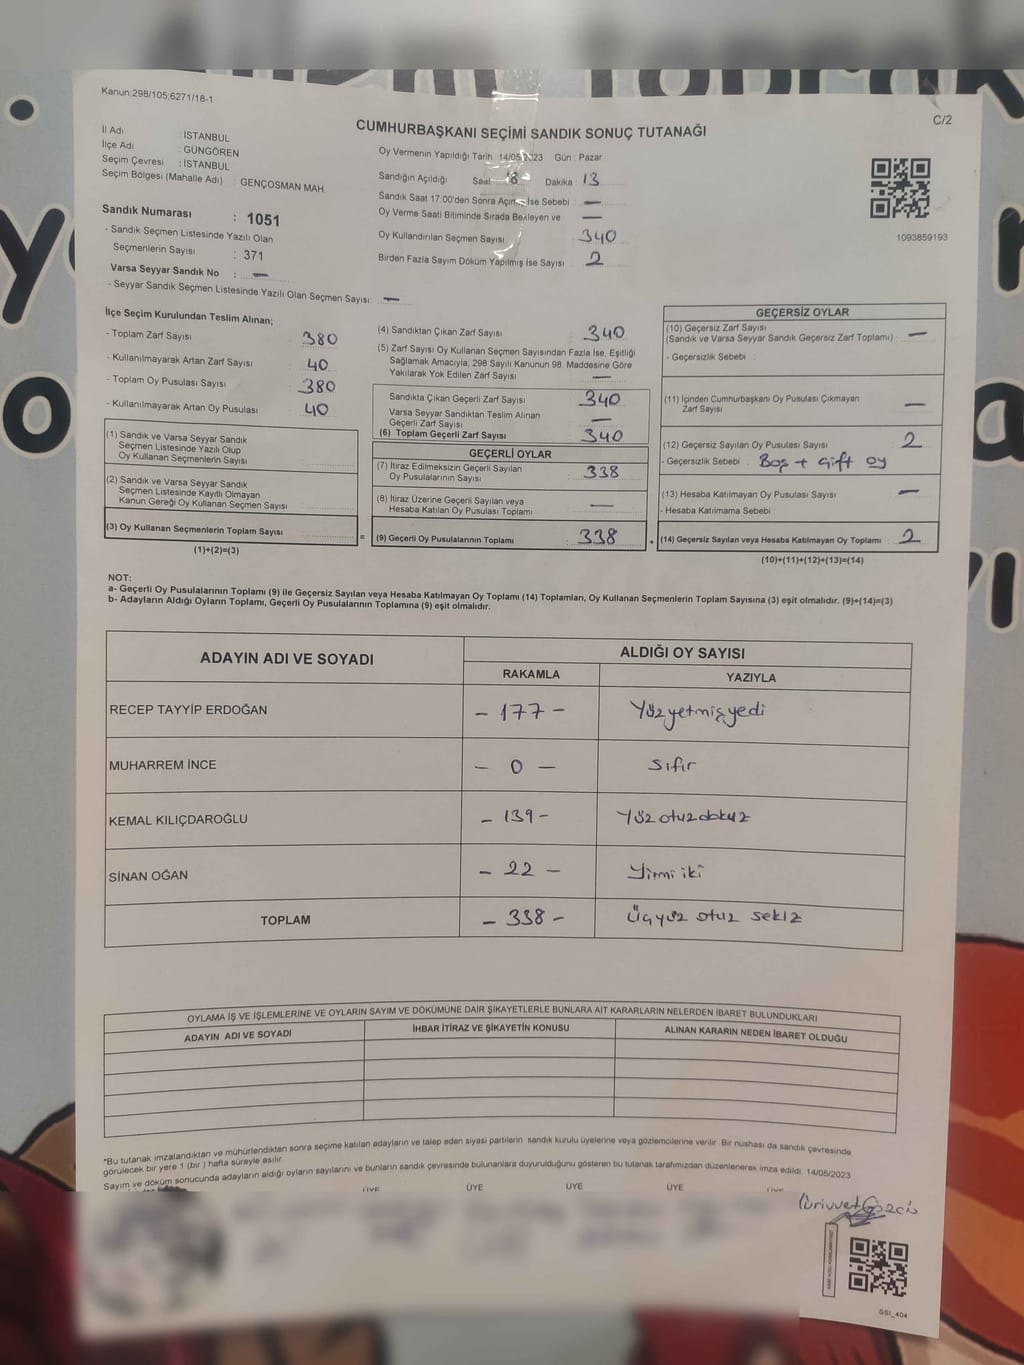 Kanun:298/105;6271/18-1
C/2
CUMHURBAŞKANI SEÇİMİ SANDIK SONUÇ TUTANAĞI
İl Adı : İSTANBUL
İlçe Adı : GÜNGÖREN
Seçim Çevresi : İSTANBUL
Seçim Bölgesi (Mahalle Adı) : GENÇOSMAN MAH.
Sandık Numarası : 1051
- Sandık Seçmen Listesinde Yazılı Olan
Seçmenlerin Sayısı : 371
Varsa Seyyar Sandık No : —
- Seyyar Sandık Seçmen Listesinde Yazılı Olan Seçmen Sayısı: —
Oy Vermenin Yapıldığı Tarih 14/05/2023 Gün : Pazar
Sandığın Açıldığı Saat 18 Dakika : 13
Sandık Saat 17.00'den Sonra Açılmış İse Sebebi : —
Oy Verme Saati Bitiminde Sırada Bekleyen ve —
Oy Kullandırılan Seçmen Sayısı 340
Birden Fazla Sayım Döküm Yapılmış İse Sayısı : 2
1093859193
İlçe Seçim Kurulundan Teslim Alınan;
- Toplam Zarf Sayısı : 380
- Kullanılmayarak Artan Zarf Sayısı : 40
- Toplam Oy Pusulası Sayısı : 380
- Kullanılmayarak Artan Oy Pusulası : 40
(1) Sandık ve Varsa Seyyar Sandık
Seçmen Listesinde Yazılı Olup
Oy Kullanan Seçmenlerin Sayısı
(2) Sandık ve Varsa Seyyar Sandık
Seçmen Listesinde Kayıtlı Olmayan
Kanun Gereği Oy Kullanan Seçmen Sayısı :
(3) Oy Kullanan Seçmenlerin Toplam Sayısı :
(1)+(2)=(3)
=
(4) Sandıktan Çıkan Zarf Sayısı : 340
(5) Zarf Sayısı Oy Kullanan Seçmen Sayısından Fazla İse, Eşitliği
Sağlamak Amacıyla; 298 Sayılı Kanunun 98. Maddesine Göre
Yakılarak Yok Edilen Zarf Sayısı : —
Sandıkta Çıkan Geçerli Zarf Sayısı : 340
Varsa Seyyar Sandıktan Teslim Alınan
Geçerli Zarf Sayısı : —
(6) Toplam Geçerli Zarf Sayısı : 340
GEÇERLİ OYLAR
(7) İtiraz Edilmeksizin Geçerli Sayılan
Oy Pusulalarının Sayısı : 338
(8) İtiraz Üzerine Geçerli Sayılan veya
Hesaba Katılan Oy Pusulası Toplamı : —
(9) Geçerli Oy Pusulalarının Toplamı : 338
+
GEÇERSİZ OYLAR
(10) Geçersiz Zarf Sayısı
(Sandık ve Varsa Seyyar Sandık Geçersiz Zarf Toplamı) : —
- Geçersizlik Sebebi :
(11) İçinden Cumhurbaşkanı Oy Pusulası Çıkmayan
Zarf Sayısı : —
(12) Geçersiz Sayılan Oy Pusulası Sayısı : 2
- Geçersizlik Sebebi : Boş + Çift oy
(13) Hesaba Katılmayan Oy Pusulası Sayısı : —
- Hesaba Katılmama Sebebi
(14) Geçersiz Sayılan veya Hesaba Katılmayan Oy Toplamı : 2
(10)+(11)+(12)+(13)=(14)
NOT:
a- Geçerli Oy Pusulalarının Toplamı (9) ile Geçersiz Sayılan veya Hesaba Katılmayan Oy Toplamı (14) Toplamları, Oy Kullanan Seçmenlerin Toplam Sayısına (3) eşit olmalıdır. (9)+(14)=(3)
b- Adayların Aldığı Oyların Toplamı, Geçerli Oy Pusulalarının Toplamına (9) eşit olmalıdır.
ADAYIN ADI VE SOYADI
ALDIĞI OY SAYISI
RAKAMLA
YAZIYLA
RECEP TAYYİP ERDOĞAN – 177 – Yüzyetmişyedi
MUHARREM İNCE – 0 – Sıfır
KEMAL KILIÇDAROĞLU – 139 – Yüzotuzdokuz
SİNAN OĞAN – 22 – Yirmi iki
TOPLAM – 338 – Üçyüz otuz sekiz
OYLAMA İŞ VE İŞLEMLERİNE VE OYLARIN SAYIM VE DÖKÜMÜNE DAİR ŞİKAYETLERLE BUNLARA AİT KARARLARIN NELERDEN İBARET BULUNDUKLARI
ADAYIN ADI VE SOYADI
İHBAR İTİRAZ VE ŞİKAYETİN KONUSU
ALINAN KARARIN NEDEN İBARET OLDUĞU
*Bu tutanak imzalandıktan ve mühürlendikten sonra seçime katılan adayların ve talep eden siyasi partilerin sandık kurulu üyelerine veya gözlemcilerine verilir. Bir nüshası da sandık çevresinde
görülecek bir yere 1 (bir ) hafta süreyle asılır.
Sayım ve döküm sonucunda adayların aldığı oyların sayılarını ve bunların sandık çevresinde bulunanlara duyurulduğunu gösteren bu tutanak tarafımızdan düzenlenerek imza edildi. 14/05/2023
ÜYE ÜYE ÜYE ÜYE
SSI_404